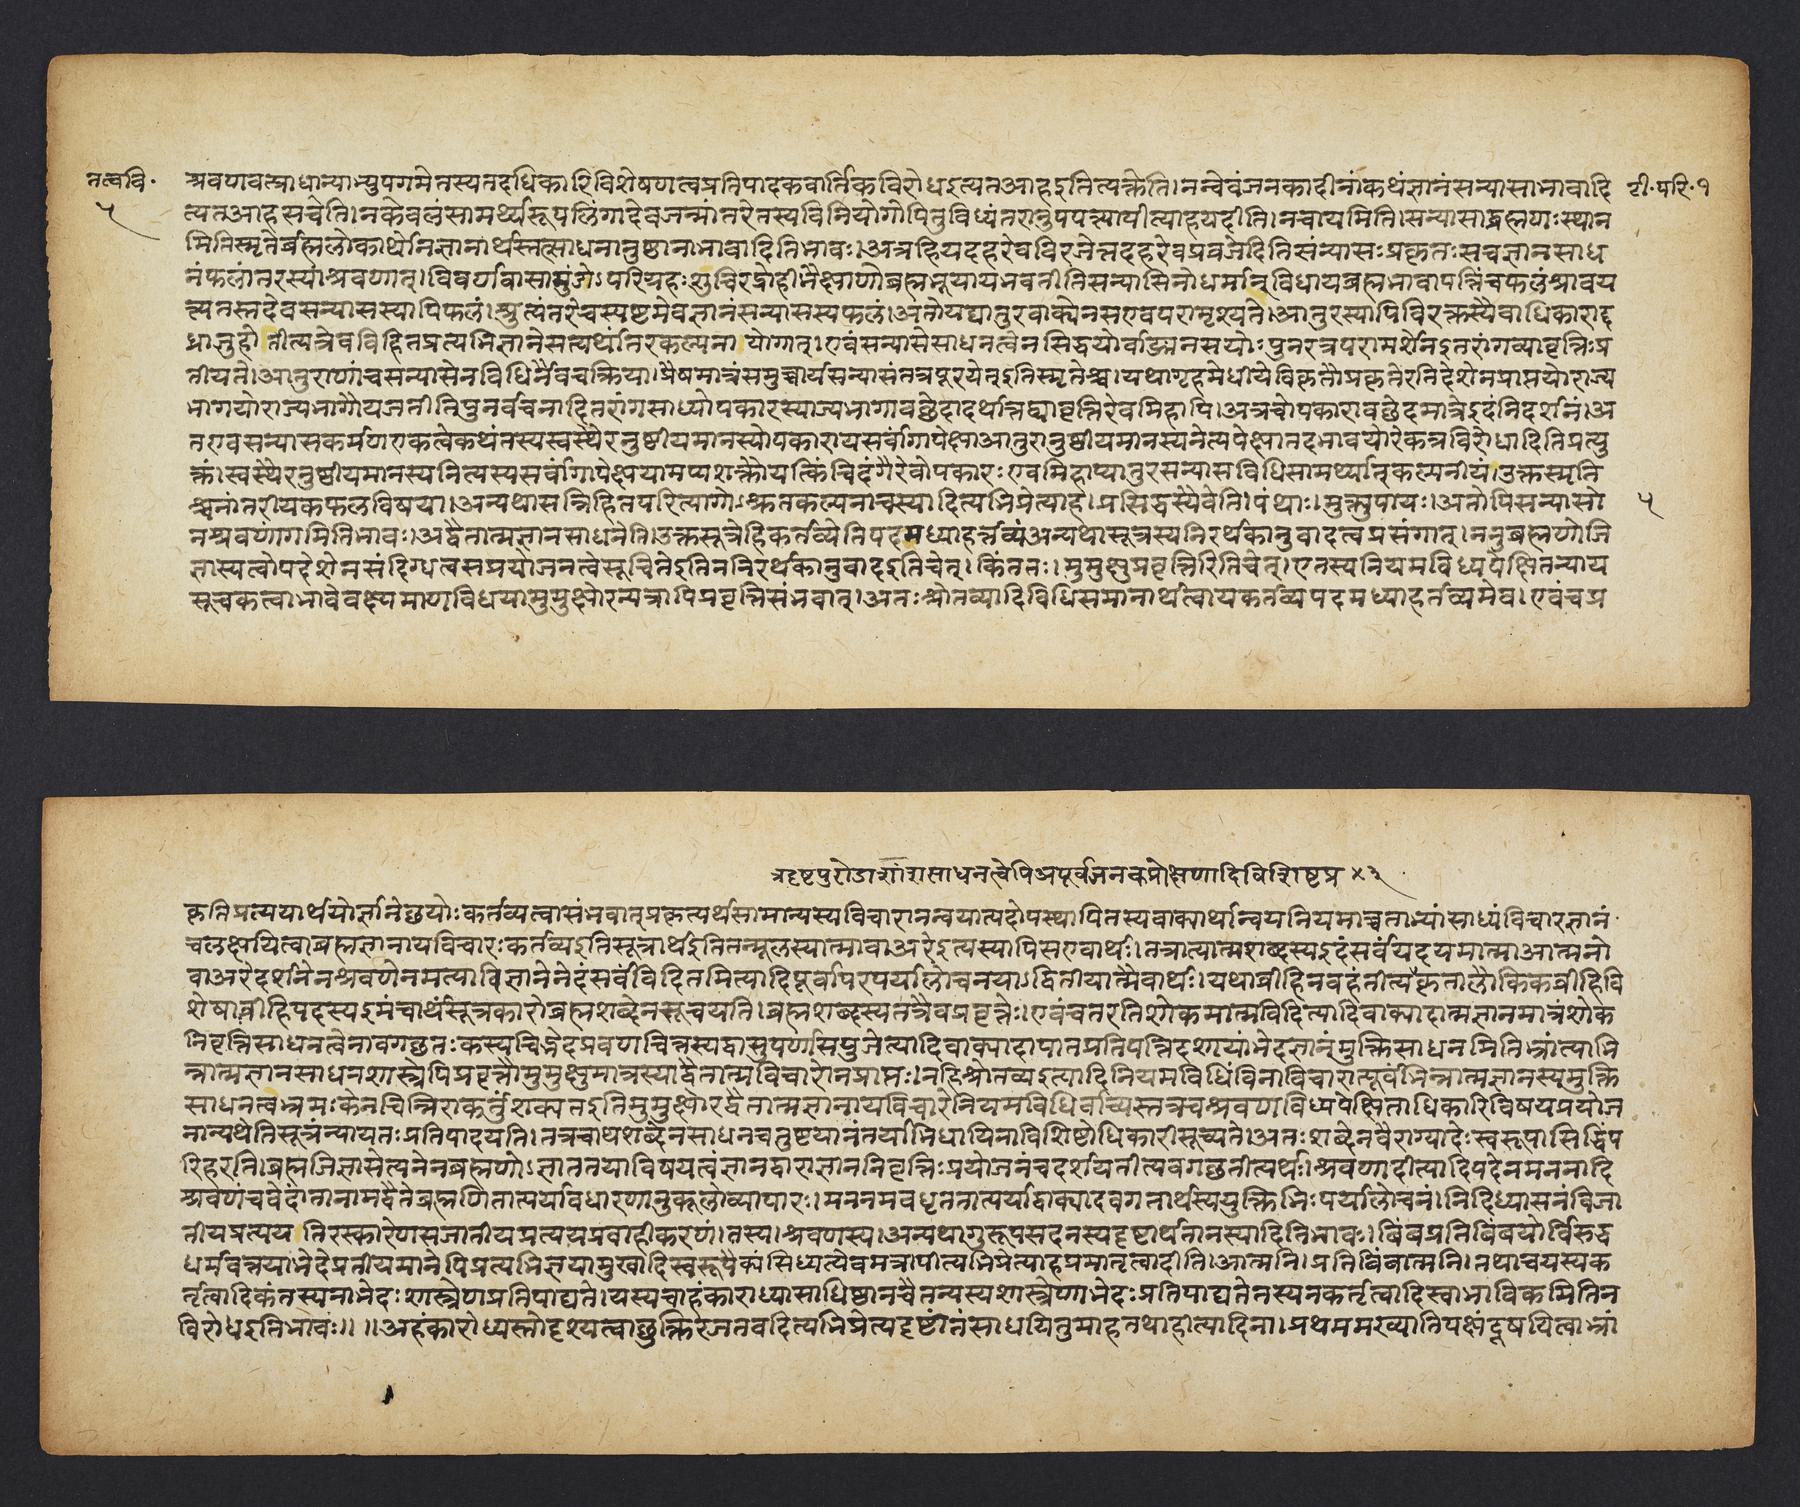 तत्त्ववि॰
५
टी॰परि॰१
श्रवणवत्प्राधान्याभ्युपगमेतस्यतदधिकारिविशेषणत्वप्रतिपादकवार्तिकविरोधइत्यतआहइतित्यक्तेति।नन्वेवंजनकादीनांकथंज्ञानंसन्यासाभावादि
त्यतआहसचेति।नकेवलंसामर्थ्यरूपलिंगादेवजन्मांतरेतस्यविनियोगोपितुविध्यंतरानुपपत्त्यापीत्याहयदीति।नचायमिति।सन्यासाद्ब्रह्मणःस्थान
मितिस्मृतेर्ब्रह्मलोकार्थेनज्ञानार्थस्तत्साधनानुष्ठानाभावादितिभावः।अत्रहियदहरेवविरजेत्तदहरेवप्रव्रजेदितिसंन्यासःप्रकृतःसचज्ञानसाध
नंफलांतरस्याश्रवणात्।विवर्णवासामुंडोऽपरिग्रहःशुचिरद्रोहीभैक्षाणोब्रह्मभूयायभवतीतिसन्यासिनोधर्मान्विधायब्रह्मभावापत्तिंचफलंश्रावय
त्यतस्तदेवसन्यासस्यापिफलं।श्रुत्यंतरेचस्पष्टमेवज्ञानंसंन्यासस्यफलं।अतोयद्यातुरवाक्येनसएवपरामृश्यते।आतुरस्यापिविरक्तस्यैवाधिकाराद्द
ध्राजुहोतीत्यत्रेवविहितप्रत्यभिज्ञानेसत्यर्थांतरकल्पनायोगात्।एवंसन्याससाधनत्वेनसिद्धयोर्वाङ्मानसयोःपुनरत्रपरामर्शेनइतरांगव्यावृत्तिःप्र
तीयते।आतुराणांचसन्यासेनविधिर्नैवचक्रिया।प्रैषमात्रंसमुच्चार्यसन्यासंतत्रपूरयेत्इतिस्मृतेश्च।यथागृहमेधीयेविकृतौप्रकृतेरतिदेशेनप्राप्तयोराज्य
भागयोराज्यभागौयजतीतिपुनर्वचनादितरांगसाध्योपकारस्याज्यभागावच्छेदादर्थात्तद्व्यावृत्तिरेवमिहापि।अत्रचोपकारावच्छेदमात्रेइदंनिदर्शनं।अ
तएवसन्यासकर्मणएकत्वेकथंतस्यस्वस्थैरनुष्ठीयमानस्योपकारायसर्वांगापेक्षाआतुरानुष्ठीयमानस्यनेत्यपेक्षातदभावयोरेकत्रविरोधादितिप्रत्यु
क्तं।स्वस्थैरनुष्ठीयमानस्यनित्यस्यसर्वांगापेक्षायामप्यशक्तौयत्किंचिदंगैरेवोपकारःएवमिहाप्यातुरसन्यासविधिसामर्थ्यात्कल्पनीयं।उक्तस्मृति
श्चनांतरीयकफलविषया।अन्यथासन्निहितपरित्यागोऽश्रुतकल्पनाचस्यादित्यभिप्रेत्याह।प्रसिद्धस्यैवेति।पंथाः।मुक्त्युपायः।अतोपिसन्यासो
५
नश्रवणांगमितिभावः।अद्वैतात्मज्ञानसाधनेति।उक्तसूत्रेहिकर्तव्येतिपदमध्याहर्त्तव्यंअन्यथासूत्रस्यनिरर्थकानुवादत्वप्रसंगात्।ननुब्रह्मणोजि
ज्ञास्यत्वोपदेशेनसंदिग्धत्वसप्रयोजनत्वेसूचितेइतिननिरर्थकानुवादइतिचेत्।किंततः।मुमुक्षुप्रवृत्तिरितिचेत्।एतस्यनियमविध्यपेक्षितन्याय
सूचकत्वाभावेवक्ष्यमाणविधयामुमुक्षोरन्यत्रापिप्रवृत्तिसंभवात्।अतःश्रोतव्यादिविधिसमानार्थत्वायकर्तव्यपदमध्याहर्तव्यमेव।एवंचप्र
कृतिप्रत्ययार्थयोर्ज्ञानेच्छयोःकर्तव्यत्वासंभवात्प्रकृत्यर्थसामान्यस्यविचारानन्वयात्पदोपस्थापितस्यवाक्यार्थान्वयनियमाच्चताभ्यांसाध्यंविचारज्ञानं
चलक्षयित्वाब्रह्मज्ञानायविचारःकर्तव्यइतिसूत्रार्थइतितन्मूलस्यात्मावाअरेइत्यस्यापिसएवार्थः।तत्राप्यात्मशब्दस्यइदंसर्वंयदयमात्माआत्मनो
वाअरेदर्शनेनश्रवणेनमत्याविज्ञानेनेदंसर्वंविदितमित्यादिपूर्वापरपर्यालोचनयाऽद्वितीयात्मैवार्थः।यथाव्रीहिनवहंतीत्यकृतालौकिकव्रीहिवि
शेषाव्रीहिपदस्यइमंचार्थंसूत्रकारोब्रह्मशब्देनसूचयति।ब्रह्मशब्दस्यतत्रैवप्रवृत्तेः।एवंचतरतिशोकमात्मविदित्यादिवाक्यादात्मज्ञानमात्रंशोक
निवृत्तिसाधनत्वेनावगच्छतःकस्यचिद्भेदप्रवणचित्तस्यद्वासुपर्णासयुजेत्यादिवाक्यादापातप्रतिपत्तिदशायांभेदज्ञानंमुक्तिसाधनमितिभ्रांत्याभि
न्नात्मज्ञानसाधनशास्त्रेपिप्रवृत्तौमुमुक्षुमात्रस्याद्वैतात्मविचारोनप्राप्तः।नहिश्रोतव्यइत्यादिनियमविधिंविनाविचारात्पूर्वंभिन्नात्मज्ञानस्यमुक्ति
साधनत्वभ्रमःकेनचिन्निराकर्तुंशक्यतइतिमुमुक्षोरद्वैतात्मज्ञानायविचारेनियमविधिर्वाच्यस्तत्रचश्रवणविध्यपेक्षिताधिकारिविषयप्रयोज
नान्यथेतिसूत्रंन्यायतःप्रतिपादयति।तत्रचाथशब्देनसाधनचतुष्टयानंतर्याभिधायिनाविशिष्टोधिकारीसूच्यते।अतःशब्देनवैराग्यादेःस्वरूपासिद्धिंप
रिहरति।ब्रह्मजिज्ञासेत्यनेनब्रह्मणोऽज्ञाततयाविषयत्वंज्ञानद्वाराज्ञाननिवृत्तिःप्रयोजनंचदर्शयतीत्यवगच्छतीत्यर्थः।श्रवणादीत्यादिपदेनमननादि
श्रवणंचवेदांतानामद्वैतेब्रह्मणितात्पर्यावधारणानुकूलोव्यापारः।मननमवधृततात्पर्याद्वाक्यादवगतार्थस्ययुक्तिभिःपर्यालोचनं।निदिध्यासनंविजा
तीयप्रत्ययतिरस्कारेणसजातीयप्रत्ययप्रवाहीकरणं।तस्य।श्रवणस्य।अन्यथागुरूपसदनस्यदृष्टार्थतानस्यादितिभावः।बिंबप्रतिबिंबयोर्विरुद्ध
धर्मवत्तयाभेदेप्रतीयमानेपिप्रत्यभिज्ञयामुखादिस्वरूपैक्यंसिध्यत्येवमत्रापीत्यभिप्रेत्याहप्रमातृत्वादीति।आत्मनि।प्रतिबिंबात्मनि।तथाचयस्यक
र्तृत्वादिकंतस्यनाभेदःशास्त्रेणप्रतिपाद्यते।यस्यचाहंकाराध्यासाधिष्ठानचैतन्यस्यशास्त्रेणाभेदःप्रतिपाद्यतेतस्यनकर्तृत्वादिस्वाभाविकमितिन
विरोधइतिभावः॥ ॥अहंकारोध्यस्तोदृश्यत्वाच्छुक्तिरजतवदित्यभिप्रेत्यदृष्टांतंसाधयितुमाहतथाहीत्यादिना।प्रथममख्यातिपक्षंदूषयित्वाभ्रां